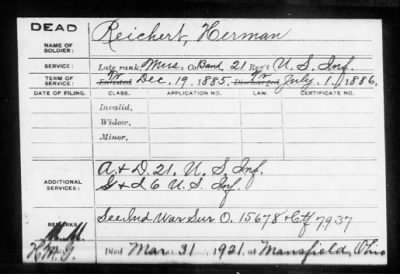 DEAD
Reichert, Herman
NAME OF SOLDIER:
SERVICE: Late rank, Mus, Co Band, 21 Reg't U. S. Inf.
TERM OF SERVICE: Enlisted Fr Dec. 19, 1885, Discharged To July 1, 1886.
DATE OF FILING. CLASS. APPLICATION NO. LAW. CERTIFICATE NO.
Invalid,
Widow,
Minor,
ADDITIONAL SERVICES:
A. & D. 21, U. S. Inf.
G & I 6 U. S. Inf.
REMARKS:
See Ind War Sur O. 15678 & Ctf 7937
Died Mar. 31, 1921, at Mansfield, Ohio